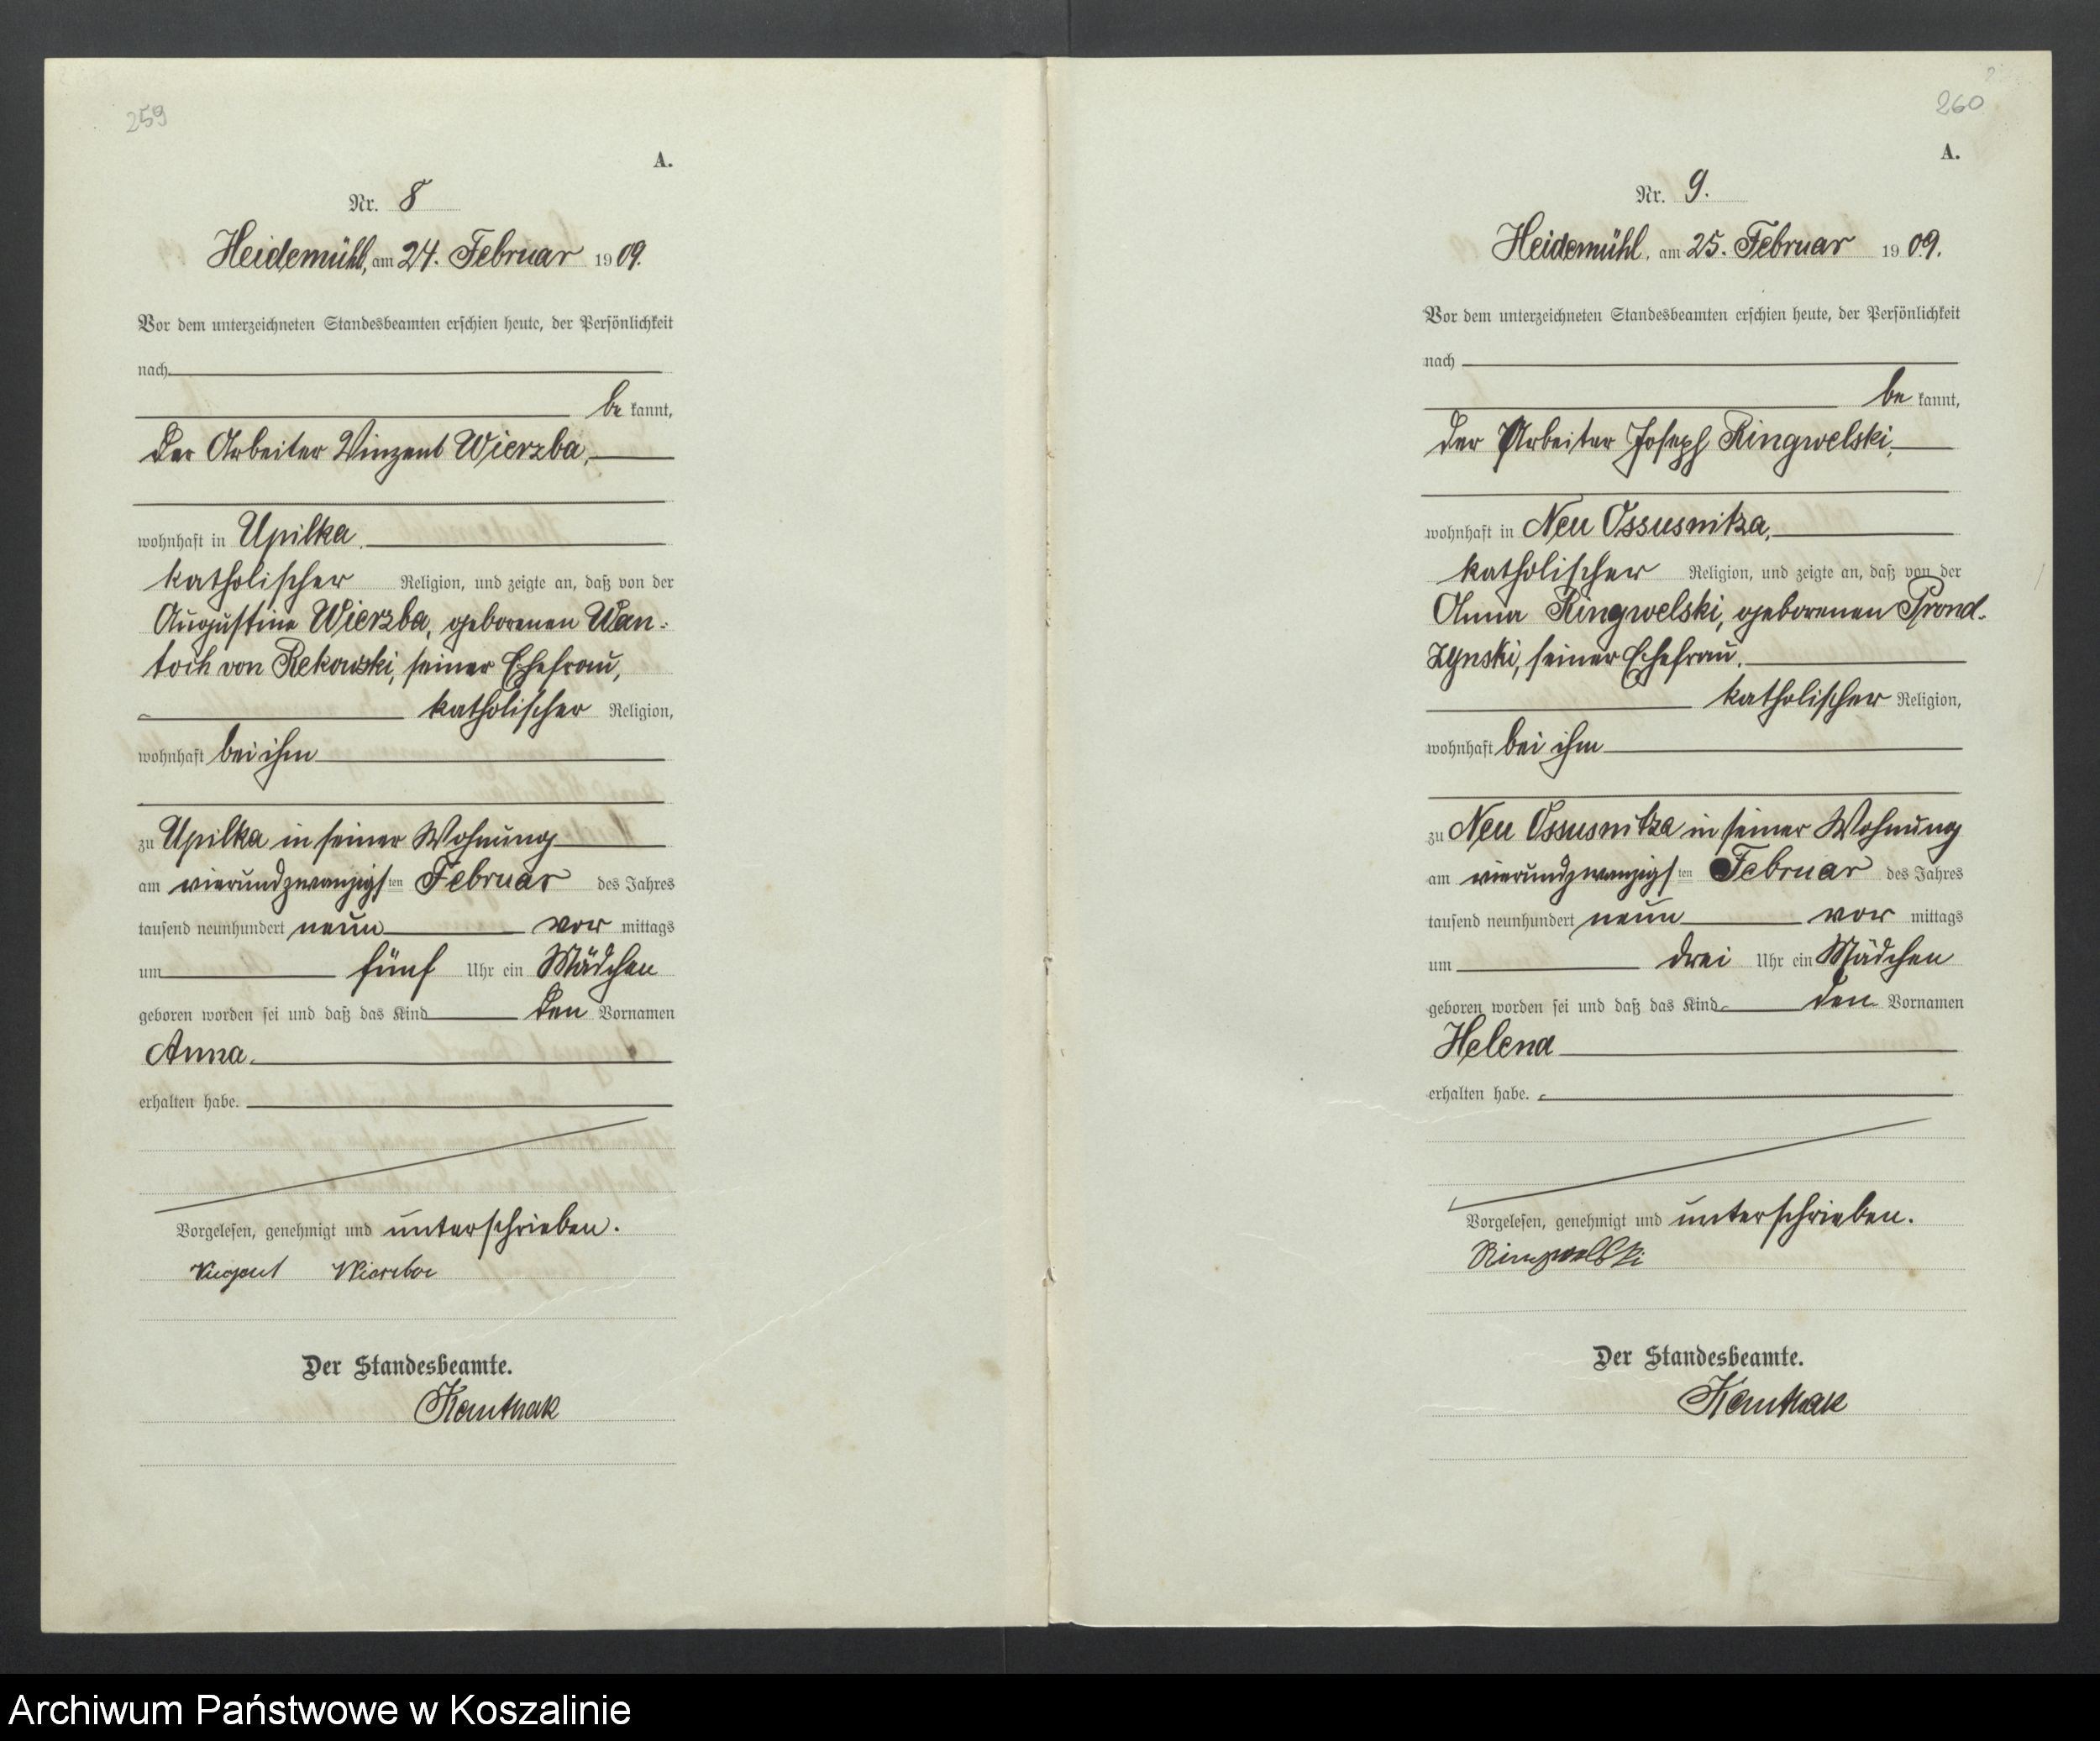 259
A.
Nr. 8
Heidemühl, am 24. Februar 1909.
Vor dem unterzeichneten Standesbeamten erschien heute, der Persönlichkeit
nach
be kannt,
der Arbeiter Vinzent Wierzba,
wohnhaft in Upilka,
katholischer Religion, und zeigte an, daß von der
Augustine Wierzba, geborenen Wan-
toch von Rekowski, seiner Ehefrau,
katholischer Religion,
wohnhaft bei ihm
zu Upilka in seiner Wohnung
am vierundzwanzigsten Februar des Jahres
tausend neunhundert neun vor mittags
um fünf Uhr ein Mädchen
geboren worden sei und daß das Kind den Vornamen
Anna
erhalten habe.
Vorgelesen, genehmigt und unterschrieben.
Vinzent Wierzba
Der Standesbeamte.
260
A.
Nr. 9.
Heidemühl, am 25. Februar 1909.
Vor dem unterzeichneten Standesbeamten erschien heute, der Persönlichkeit
nach
be kannt,
der Arbeiter Joseph Ringwelski,
wohnhaft in Neu Ossusnitza,
katholischer Religion, und zeigte an, daß von der
Anna Ringwelski, geborenen Prond-
zynski, seiner Ehefrau,
katholischer Religion,
wohnhaft bei ihm
zu Neu Ossusnitza in seiner Wohnung
am vierundzwanzigsten Februar des Jahres
tausend neunhundert neun vor mittags
um drei Uhr ein Mädchen
geboren worden sei und daß das Kind den Vornamen
Helena
erhalten habe.
Vorgelesen, genehmigt und unterschrieben.
Ringwelski
Der Standesbeamte.
Archiwum Państwowe w Koszalinie